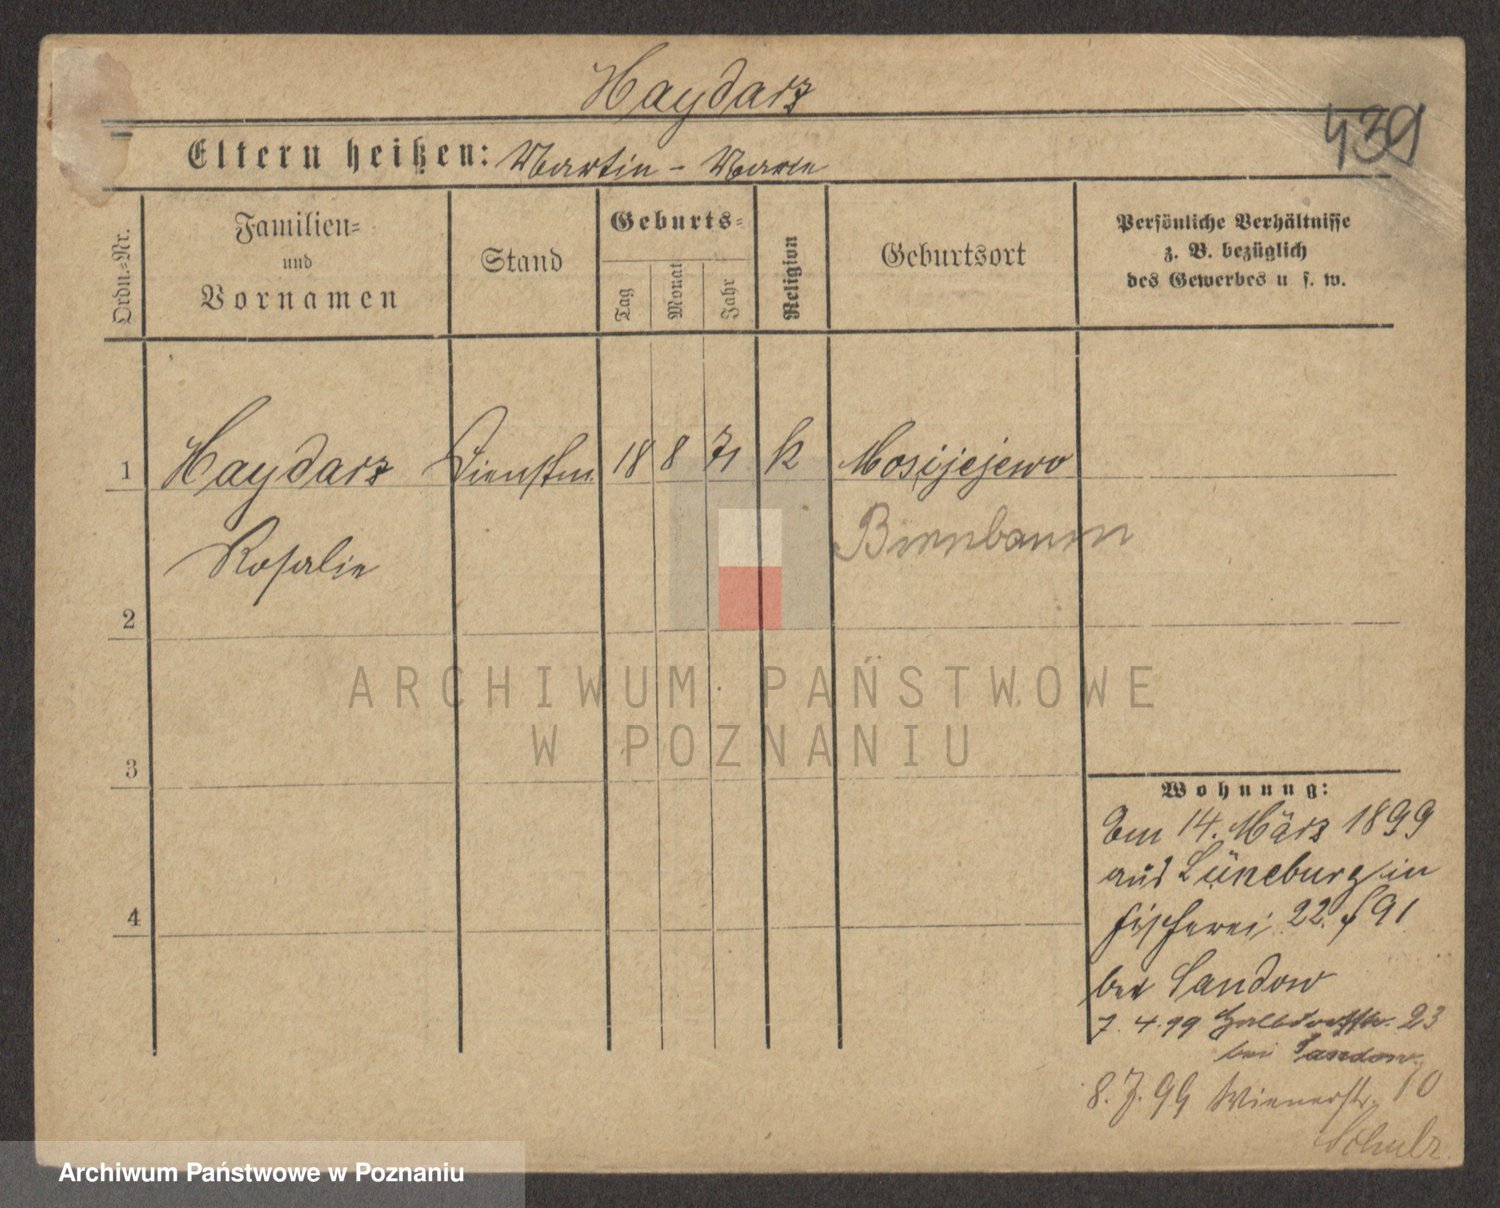 Haydarz
439
Eltern heißen: Martin - Marie
Ordn.-Nr.
Familien-
und
Vornamen
Stand
Geburts-
Tag
Monat
Jahr
Religion
Geburtsort
Persönliche Verhältnisse
z. B. bezüglich
des Gewerbes u s. w.
1 Haydarz Dienstm. 18 8 71 k Mosijejewo
Rosalie Birnbaum
2
3
4
Wohnung:
Am 14. März 1899
aus Lüneburg in
Fischerei 22.
bei Sandow
7. 4. 99 Halbdorfstr. 23
bei Sandow
8. 7. 99 Wienerstr. 10
Schulz
ARCHIWUM PAŃSTWOWE
W POZNANIU
Archiwum Państwowe w Poznaniu